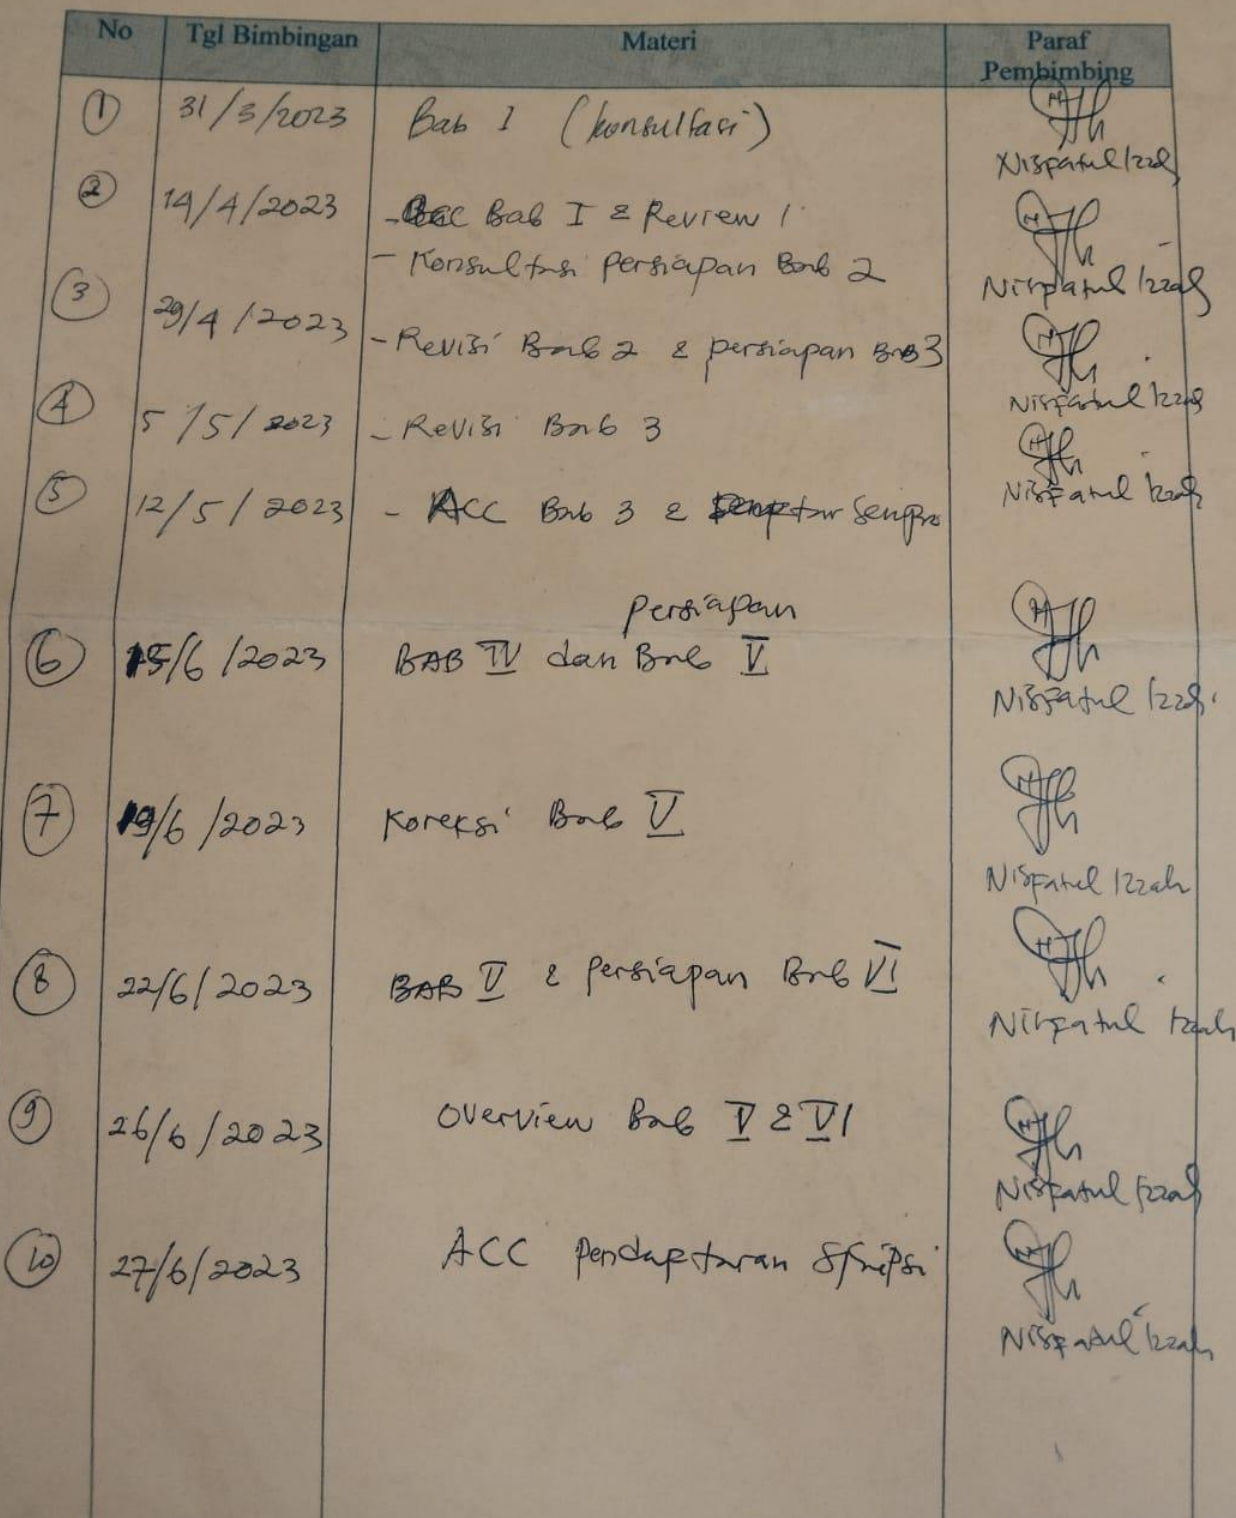 No Tgl Bimbingan Materi Paraf Pembimbing
1 31/3/2023 Bab I (konsultasi)
Nisfatul Izzah
2 14/4/2023 - Acc Bab I & Review 1
- Konsultasi Persiapan Bab 2
Nisfatul Izzah
3 29/4/2023 - Revisi Bab 2 & persiapan Bab 3
Nisfatul Izzah
4 5/5/2023 - Revisi Bab 3
Nisfatul Izzah
5 12/5/2023 - ACC Bab 3 & Sempro
Persiapan
6 15/6/2023 BAB IV dan Bab V
Nisfatul Izzah
7 19/6/2023 Koreksi Bab V
Nisfatul Izzah
8 22/6/2023 BAB V & Persiapan Bab VI
Nisfatul Izzah
9 26/6/2023 Overview Bab V & VI
Nisfatul Izzah
10 27/6/2023 ACC Pendaftaran Skripsi
Nisfatul Izzah